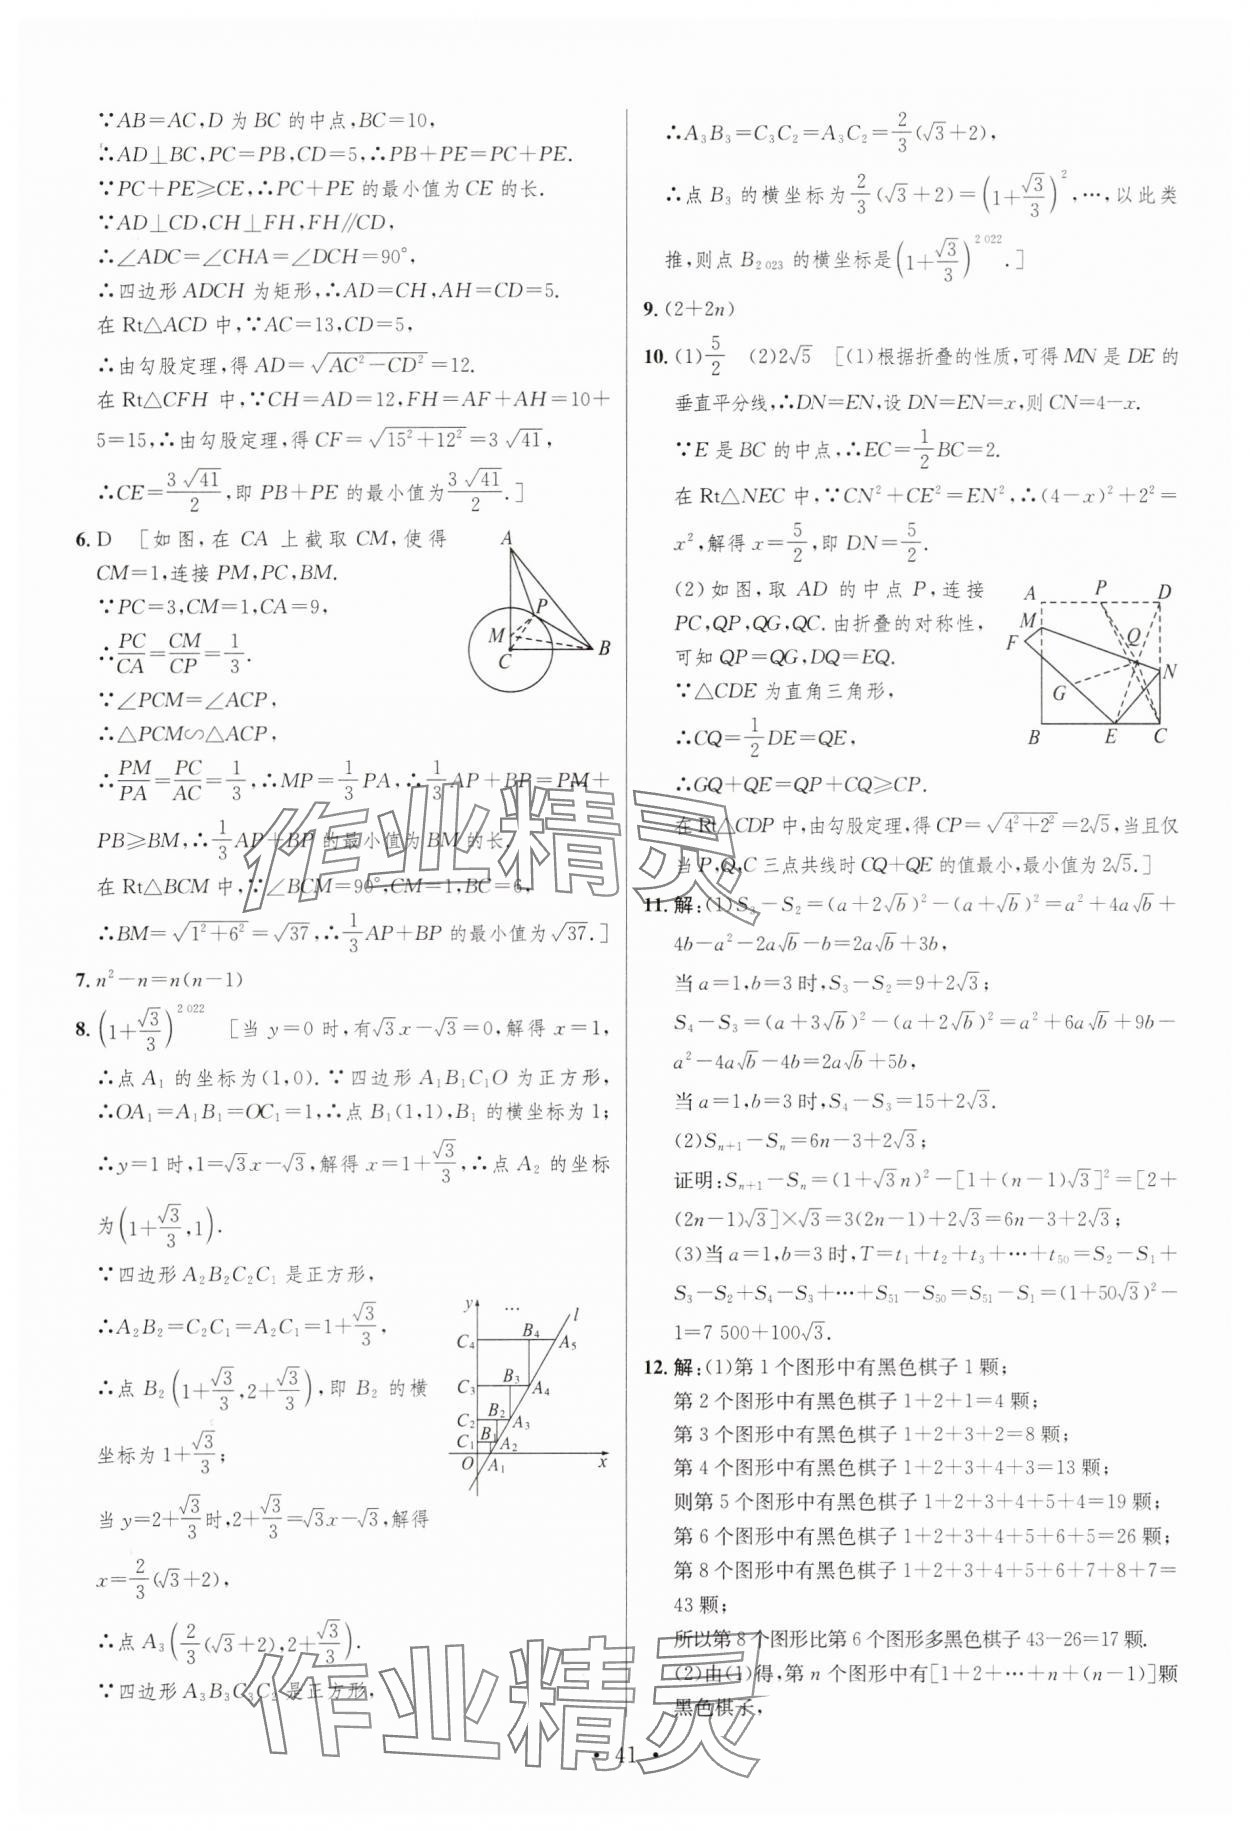 ∵AB=AC,D 为 BC 的中点,BC=10,
∴AD⊥BC,PC=PB,CD=5,∴PB+PE=PC+PE.
∵PC+PE≥CE,∴PC+PE 的最小值为 CE 的长.
∵AD⊥CD,CH⊥FH,FH∥CD,
∴∠ADC=∠CHA=∠DCH=90°,
∴四边形 ADCH 为矩形,∴AD=CH,AH=CD=5.
在 Rt△ACD 中,∵AC=13,CD=5,
∴由勾股定理,得 AD=√(AC²-CD²)=12.
在 Rt△CFH 中,∵CH=AD=12,FH=AF+AH=10+
5=15,∴由勾股定理,得 CF=√(15²+12²)=3√41,
∴CE=3√41/2,即 PB+PE 的最小值为 3√41/2.]
6. D [如图,在 CA 上截取 CM,使得
CM=1,连接 PM,PC,BM.
∵PC=3,CM=1,CA=9,
∴PC/CA=CM/CP=1/3.
∵∠PCM=∠ACP,
∴△PCM∽△ACP,
∴PM/PA=PC/AC=1/3,∴MP=1/3PA,∴1/3AP+BP=PM+
PB≥BM,∴1/3AP+BP 的最小值为 BM 的长.
在 Rt△BCM 中,∵∠BCM=90°,CM=1,BC=6,
∴BM=√(1²+6²)=√37,∴1/3AP+BP 的最小值为√37.]
A
P
M
C
B
7. n²-n=n(n-1)
8. (1+√3/3)²⁰²² [当 y=0 时,有√3x-√3=0,解得 x=1,
∴点 A₁ 的坐标为(1,0).∵四边形 A₁B₁C₁O 为正方形,
∴OA₁=A₁B₁=OC₁=1,∴点 B₁(1,1),B₁ 的横坐标为 1;
∴y=1 时,1=√3x-√3,解得 x=1+√3/3,∴点 A₂ 的坐标
为(1+√3/3,1).
∵四边形 A₂B₂C₂C₁ 是正方形,
∴A₂B₂=C₂C₁=A₂C₁=1+√3/3,
∴点 B₂(1+√3/3,2+√3/3),即 B₂ 的横
坐标为 1+√3/3;
当 y=2+√3/3时,2+√3/3=√3x-√3,解得
x=2/3(√3+2),
∴点 A₃(2/3(√3+2),2+√3/3).
∵四边形 A₃B₃C₃C₂ 是正方形,
y … l
C₄ B₄ A₅
C₃ B₃ A₄
C₂ B₂ A₃
C₁ B₁ A₂
O A₁ x
∴A₃B₃=C₃C₂=A₃C₂=2/3(√3+2),
∴点 B₃ 的横坐标为2/3(√3+2)=(1+√3/3)²,…,以此类
推,则点 B₂₀₂₃ 的横坐标是(1+√3/3)²⁰²².]
9. (2+2n)
10. (1)5/2 (2)2√5 [(1)根据折叠的性质,可得 MN 是 DE 的
垂直平分线,∴DN=EN,设 DN=EN=x,则 CN=4-x.
∵E 是 BC 的中点,∴EC=1/2BC=2.
在 Rt△NEC 中,∵CN²+CE²=EN²,∴(4-x)²+2²=
x²,解得 x=5/2,即 DN=5/2.
(2)如图,取 AD 的中点 P,连接
PC,QP,QG,QC.由折叠的对称性,
可知 QP=QG,DQ=EQ.
∵△CDE 为直角三角形,
∴CQ=1/2DE=QE,
∴GQ+QE=QP+CQ≥CP.
A P D
M
F
Q
N
G
B E C
在 Rt△CDP 中,由勾股定理,得 CP=√(4²+2²)=2√5,当且仅
当 P,Q,C 三点共线时 CQ+QE 的值最小,最小值为 2√5.]
11. 解:(1)S₃-S₂=(a+2√b)²-(a+√b)²=a²+4a√b+
4b-a²-2a√b-b=2a√b+3b,
当 a=1,b=3 时,S₃-S₂=9+2√3;
S₄-S₃=(a+3√b)²-(a+2√b)²=a²+6a√b+9b-
a²-4a√b-4b=2a√b+5b,
当 a=1,b=3 时,S₄-S₃=15+2√3.
(2)Sₙ₊₁-Sₙ=6n-3+2√3;
证明:Sₙ₊₁-Sₙ=(1+√3n)²-[1+(n-1)√3]²=[2+
(2n-1)√3]×√3=3(2n-1)+2√3=6n-3+2√3;
(3)当 a=1,b=3 时,T=t₁+t₂+t₃+…+t₅₀=S₂-S₁+
S₃-S₂+S₄-S₃+…+S₅₁-S₅₀=S₅₁-S₁=(1+50√3)²-
1=7 500+100√3.
12. 解:(1)第 1 个图形中有黑色棋子 1 颗;
第 2 个图形中有黑色棋子 1+2+1=4 颗;
第 3 个图形中有黑色棋子 1+2+3+2=8 颗;
第 4 个图形中有黑色棋子 1+2+3+4+3=13 颗;
则第 5 个图形中有黑色棋子 1+2+3+4+5+4=19 颗;
第 6 个图形中有黑色棋子 1+2+3+4+5+6+5=26 颗;
第 8 个图形中有黑色棋子 1+2+3+4+5+6+7+8+7=
43 颗;
所以第 8 个图形比第 6 个图形多黑色棋子 43-26=17 颗.
(2)由(1)得,第 n 个图形中有[1+2+…+n+(n-1)]颗
黑色棋子,
作业精灵
作业精灵
• 41 •